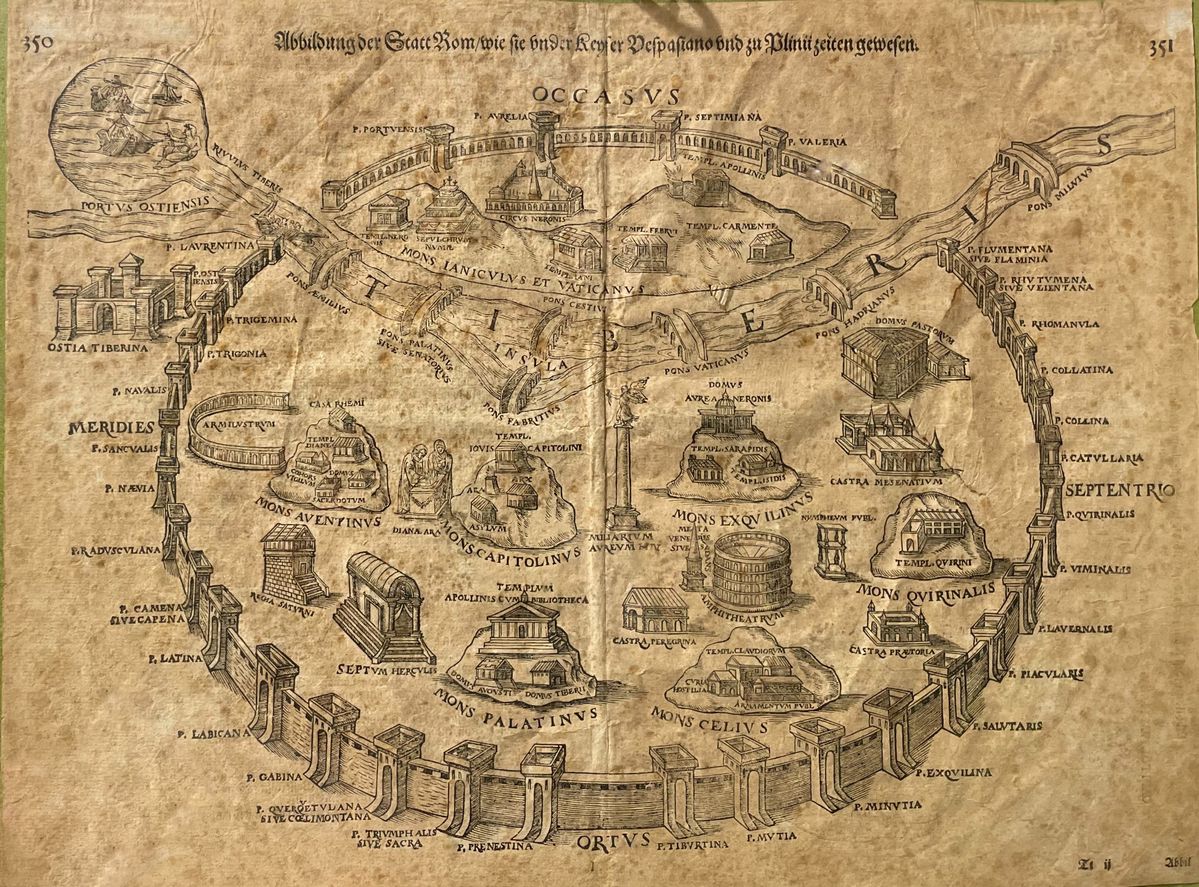 350
Abbildung der Statt Rom/wie sie vnder Keyser Vespasiano vnd zu Plinii zeiten gewesen.
351
OCCASVS
P. PORTVENSIS
P. AVRELIA
P. SEPTIMIANA
P. VALERIA
PORTVS OSTIENSIS
RIVVLVS TIBERIS
TEMPL. APOLLINIS
CIRCVS NERONIS
SEPVLCHRVM
NVMÆ
TEMPL. FEBRVI
TEMPL. CARMENTE
MONS IANICVLVS ET VATICANVS
TIBERIS
PONS MILVIVS
P. LAVRENTINA
P. OSTIENSIS
OSTIA TIBERINA
P. TRIGEMINA
P. TRIGONIA
P. NAVALIS
MERIDIES
P. SANCVALIS
P. NÆVIA
P. RADVSCVLANA
P. CAMENA
SIVE CAPENA
P. LATINA
P. LABICANA
P. GABINA
P. QVERQVETVLANA
SIVE CŒLIMONTANA
P. TRIVMPHALIS
SIVE SACRA
P. PRENESTINA
ORTVS
P. TIBVRTINA
P. MVTIA
P. MINVTIA
P. EXQVILINA
P. SALVTARIS
P. PIACVLARIS
P. LAVERNALIS
P. VIMINALIS
P. QVIRINALIS
SEPTENTRIO
P. CATVLLARIA
P. COLLINA
P. COLLATINA
P. RHOMANVLA
P. RHVTVMENA
SIVE VEIENTANA
P. FLVMENTANA
SIVE FLAMINIA
PONS PALATINVS
SIVE SENATORIVS
INSVLA
PONS CESTIVS
PONS FABRITIVS
PONS VATICANVS
PONS HADRIANVS
DOMVS PASTORVM
ARMILVSTRVM
CASA RHEMI
TEMPL.
DIANE
DOMVS
SACERDOTVM
VIGILVM
MONS AVENTINVS
DIANÆ ARA
TEMPL.
IOVIS CAPITOLINI
ARX
ASYLVM
MONS CAPITOLINVS
MILIARIVM
AVREVM
DOMVS
AVREA NERONIS
TEMPL. SARAPIDIS
TEMPL. ISIDIS
MONS EXQVILINVS
CASTRA MESENATIVM
META
SIVE
AMPHITHEATRVM
NVMPHEVM PVBL.
TEMPL. QVIRINI
MONS QVIRINALIS
REGIA SATVRNI
SEPTVM HERCVLIS
TEMPLVM
APOLLINIS CVM BIBLIOTHECA
AVGVSTI
DOMVS TIBERII
MONS PALATINVS
CASTRA PEREGRINA
TEMPL. CLAVDIORVM
HOSTILIA
ARMAMENTVM PVBL
MONS CELIVS
CASTRA PRÆTORIA
Tt ij
Abbil